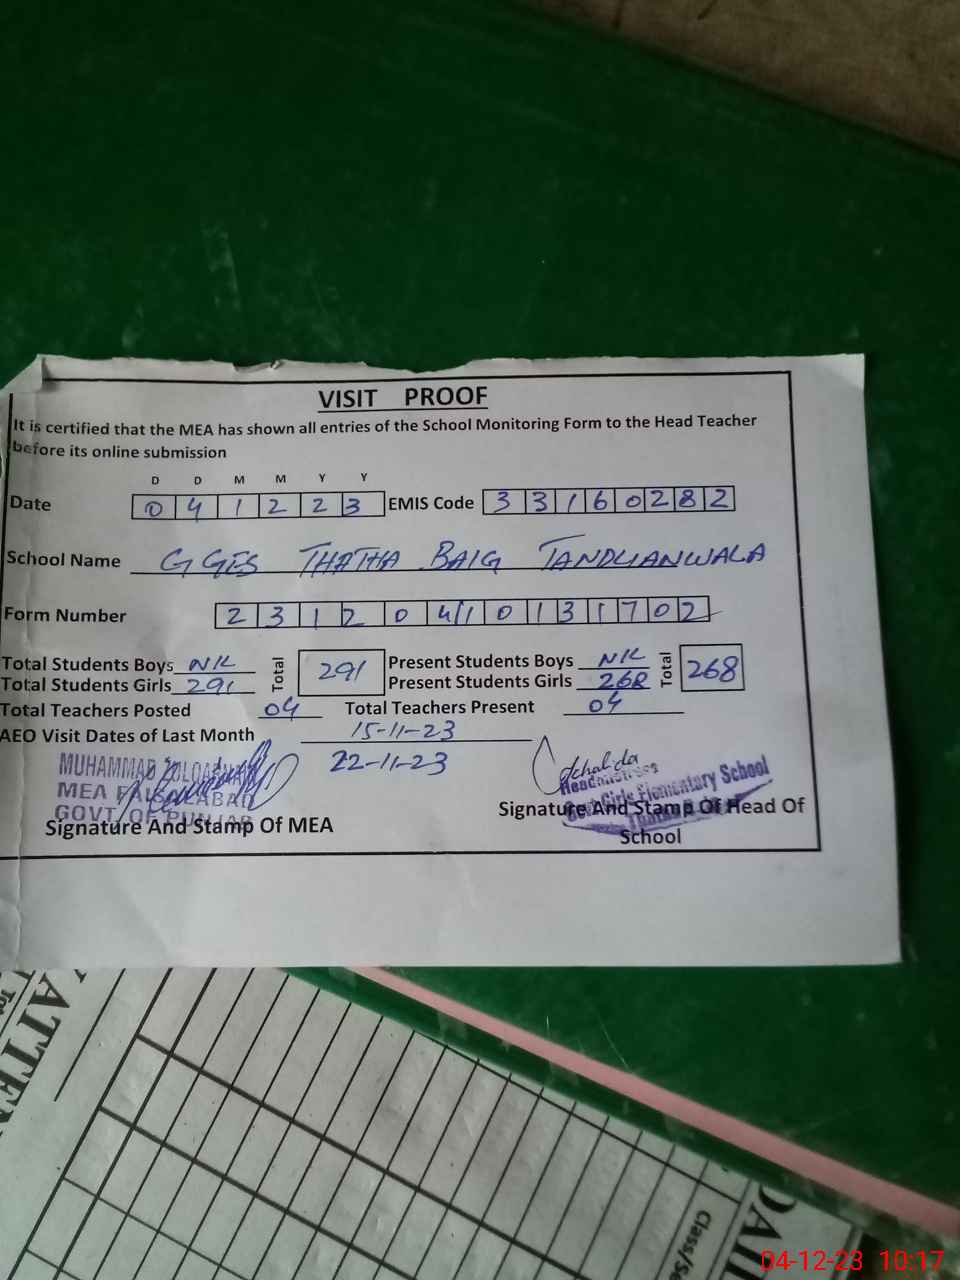 VISIT PROOF
It is certified that the MEA has shown all entries of the School Monitoring Form to the Head Teacher
before its online submission
D D M M Y Y
Date 0 4 1 2 2 3 EMIS Code 3 3 1 6 0 2 8 2
School Name GGES THATHA BAIG TANDLIANWALA
Form Number 2 3 1 2 0 4 1 0 1 3 1 7 0 2
Total Students Boys NIL Total 291 Present Students Boys NIL Total 268
Total Students Girls 291 Present Students Girls 268
Total Teachers Posted 04 Total Teachers Present 04
AEO Visit Dates of Last Month 15-11-23
22-11-23
MUHAMMAD
MEA FAISALABAD
GOVT OF PUNJAB
Signature And Stamp Of MEA
Headmistress
Govt Girls Elementary School
Signature And Stamp Of Head Of
School
ATTEN
DAIL
Class/Se
04-12-23 10:17